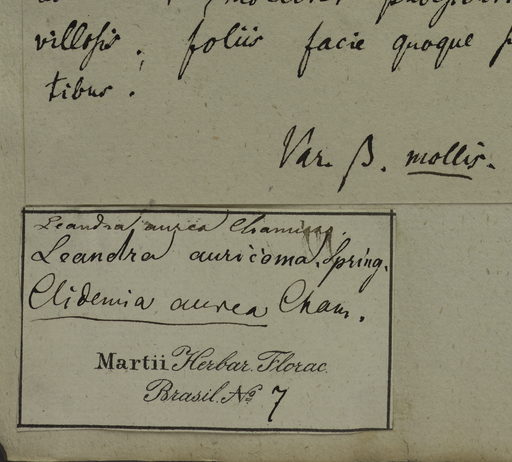 villosis. foliis facie quoque
tibus.
Var. β. mollis.
Leandra aurea Chamisso.
Leandra auricoma. Spring.
Clidemia aurea Cham.
Martii Herbar. Florae
Brasil. No 7